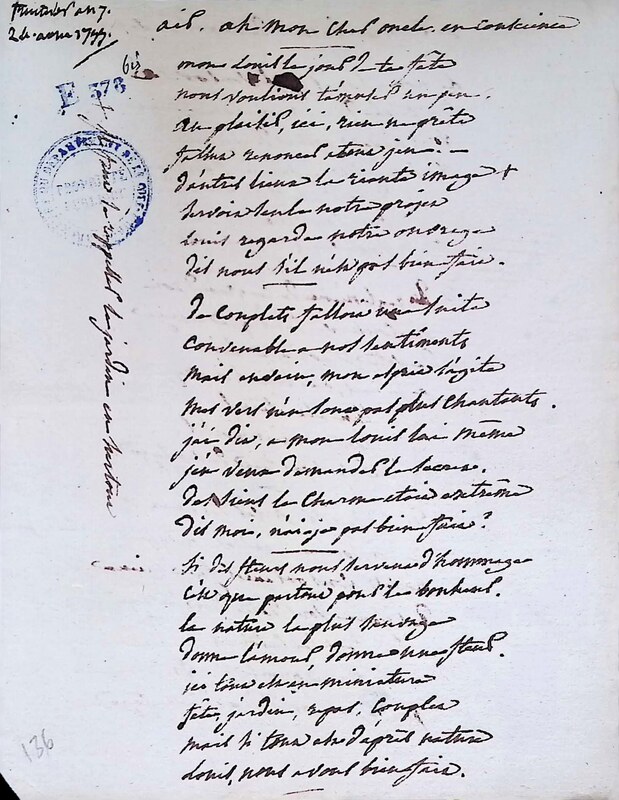 fructidor an 7.
24. aoust 1799.
air. ah mon cher oncle en conscience
bis
E 378
mon louis le jour de ta fête
nous voulions t'amuser un peu.
au plaisir, ici, rien ne prête
fallut renoncer a tout jeu. —
d'autres lieux la riante image +
servoit seule notre projet
louis regarde notre ouvrage
dis nous s'il n'est pas bien fait.
de couplets falloit une suite
convenable a nos sentiments
mais en vain, mon esprit s'agite
mes vers n'en sont pas plus chantants.
j'ai dit, a mon louis lui même
j'en veux demander le secret.
des siens le charme etoit extrême
dis moi, n'ai-je pas bien fait?
si des fleurs nous servent d'hommage
c'est que partout pour le bonheur.
la nature la plus sauvage
donne l'amour, donne une fleur.
ici tout est en miniature
fête, jardin, repas, couplet
mais si tout est d'après nature
louis, nous avons bien fait.
+ pour te rappeller le jardin en
136